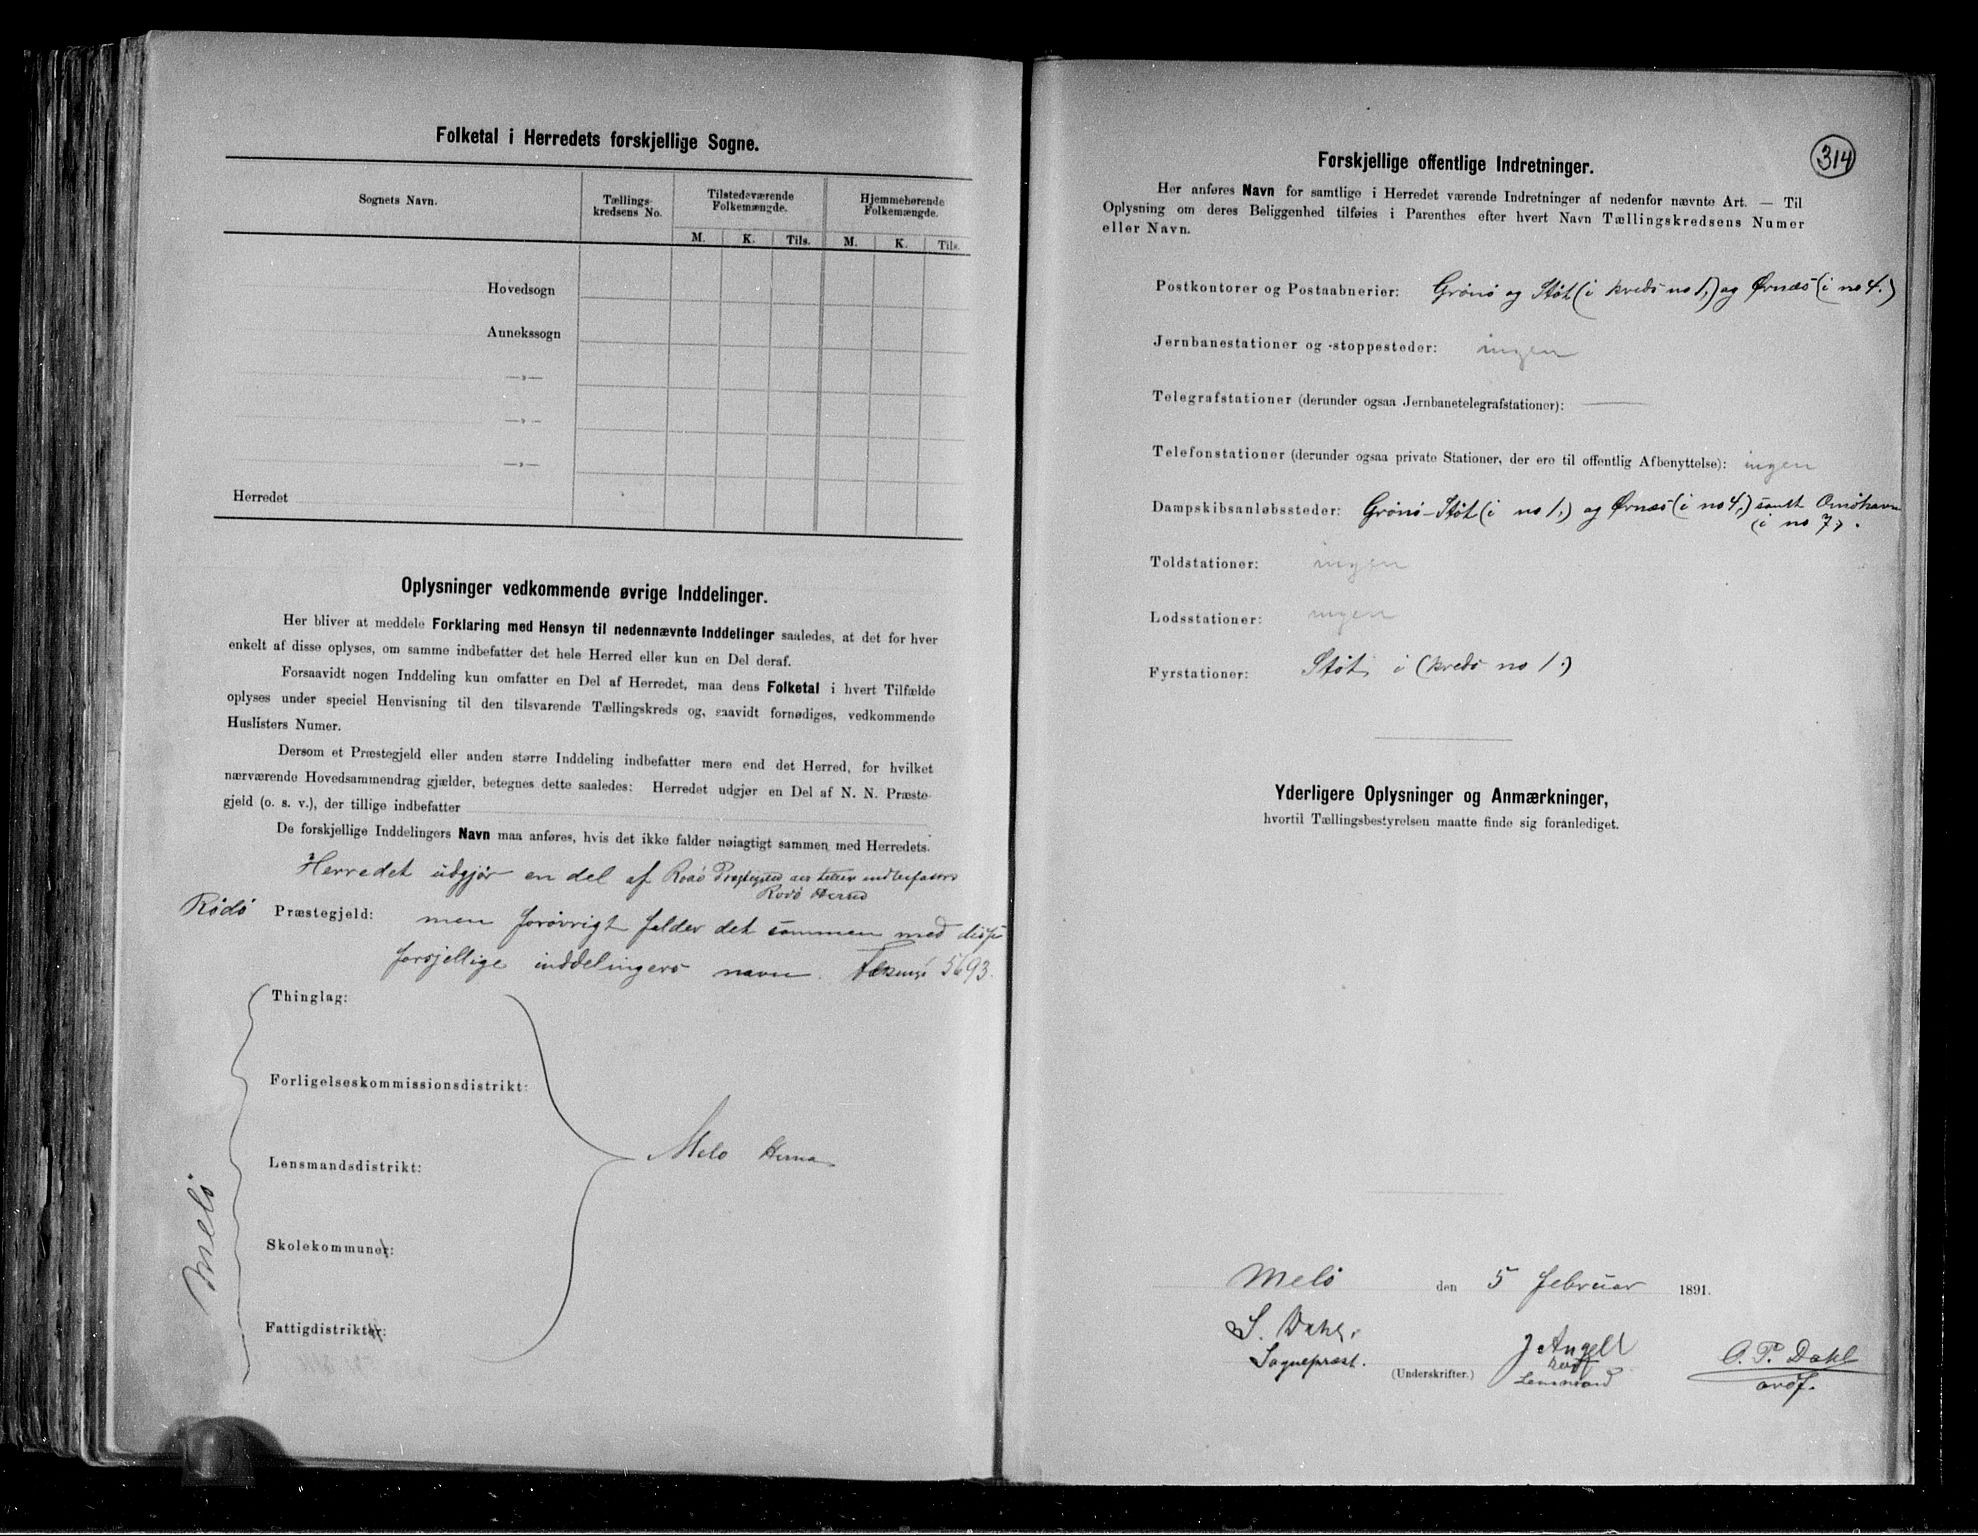 Folketal i Herredets forskjellige Sogne.
Sognets Navn.
Tællings-
kredsens No.
Tilstedeværende
Folkemængde.
Hjemmehørende
Folkemængde.
M. K. Tils. M. K. Tils.
Hovedsogn
Annekssogn
—»—
—»—
—»—
Herredet
Oplysninger vedkommende øvrige Inddelinger.
Her bliver at meddele Forklaring med Hensyn til nedennævnte Inddelinger saaledes, at det for hver
enkelt af disse oplyses, om samme indbefatter det hele Herred eller kun en Del deraf.
Forsaavidt nogen Inddeling kun omfatter en Del af Herredet, maa dens Folketal i hvert Tilfælde
oplyses under speciel Henvisning til den tilsvarende Tællingskreds og, saavidt fornødiges, vedkommende
Huslisters Numer.
Dersom et Præstegjeld eller anden større Inddeling indbefatter mere end det Herred, for hvilket
nærværende Hovedsammendrag gjælder, betegnes dette saaledes: Herredet udgjør en Del af N. N. Præste-
gjeld (o. s. v.), der tillige indbefatter
De forskjellige Inddelingers Navn maa anføres, hvis det ikke falder nøiagtigt sammen med Herredets.
Herredet udgjør en del af Rødö
Rödö Herred
Rödö Præstegjeld: men forövrigt falder det sammen med
forsjellige inddelingers navn. 5693.
Thinglag:
Forligelseskommissionsdistrikt:
Melö
Lensmandsdistrikt:
Melö
Skolekommuner:
Fattigdistrikter:
314
Forskjellige offentlige Indretninger.
Her anføres Navn for samtlige i Herredet værende Indretninger af nedenfor nævnte Art. — Til
Oplysning om deres Beliggenhed tilføies i Parenthes efter hvert Navn Tællingskredsens Numer
eller Navn.
Postkontorer og Postaabnerier: Grönö og Støt (i kreds no 1,) og Ørnæs (i no 4.)
Jernbanestationer og -stoppesteder: ingen
Telegrafstationer (derunder ogsaa Jernbanetelegrafstationer): —
Telefonstationer (derunder ogsaa private Stationer, der ere til offentlig Afbenyttelse): ingen
Dampskibsanløbssteder: Grönö-Støt (i no 1,) og Ørnæs (i no 4,) samt Omöhavn
(i no 7).
Toldstationer: ingen
Lodsstationer: ingen
Fyrstationer: Støt i (kreds no 1.)
Yderligere Oplysninger og Anmærkninger,
hvortil Tællingsbestyrelsen maatte finde sig foranlediget.
Melö den 5 februar 1891.
S. Dahl. J. Angell O. P. Dahl
Sognepræst. (Underskrifter.)
Lensmand ordf.